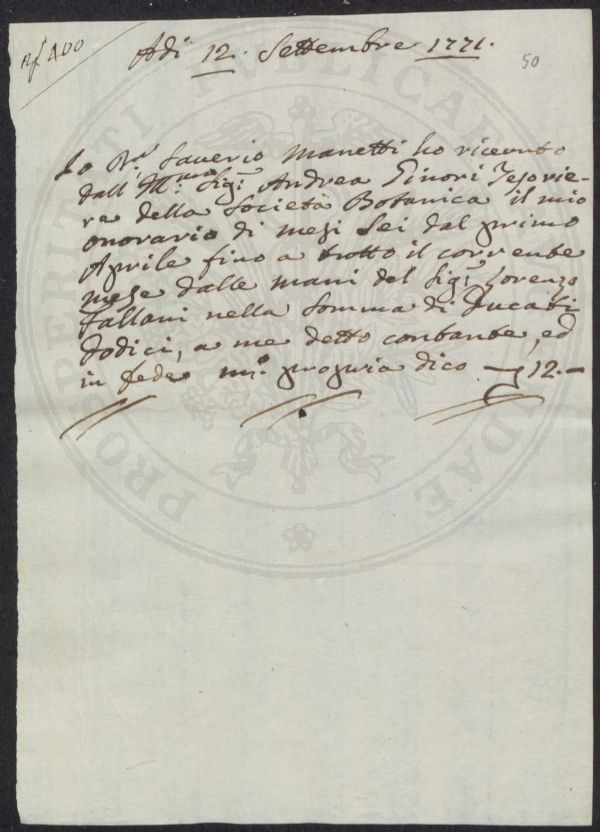 Adi 12. Settembre 1771.
50
Io Dr. Saverio Manetti ho ricevuto
dall'Ill.mo Sig.r Andrea Ginori Tesorie-
re della Società Botanica il mio
onorario di mesi sei dal primo
Aprile fino a tutto il corrente
mese dalle mani del Sig.r Lorenzo
Fallani nella somma di Ducati
dodici, a me detto contante, ed
in fede m.o propria dico 12.-
PROSPERITATI PUBLICAE AUGENDAE